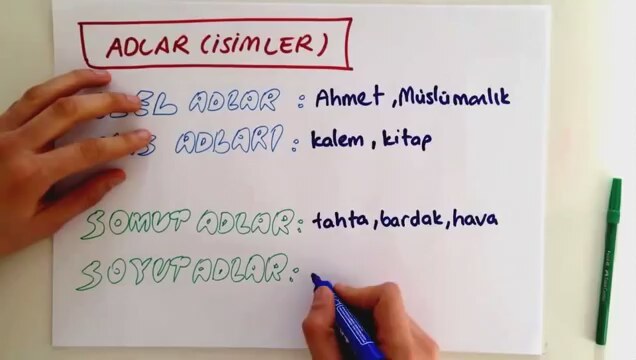 ADLAR (İSİMLER)
ADLAR : Ahmet, Müslümanlık
ADLARI : kalem, kitap
SOMUT ADLAR: tahta, bardak, hava
SOYUT ADLAR: